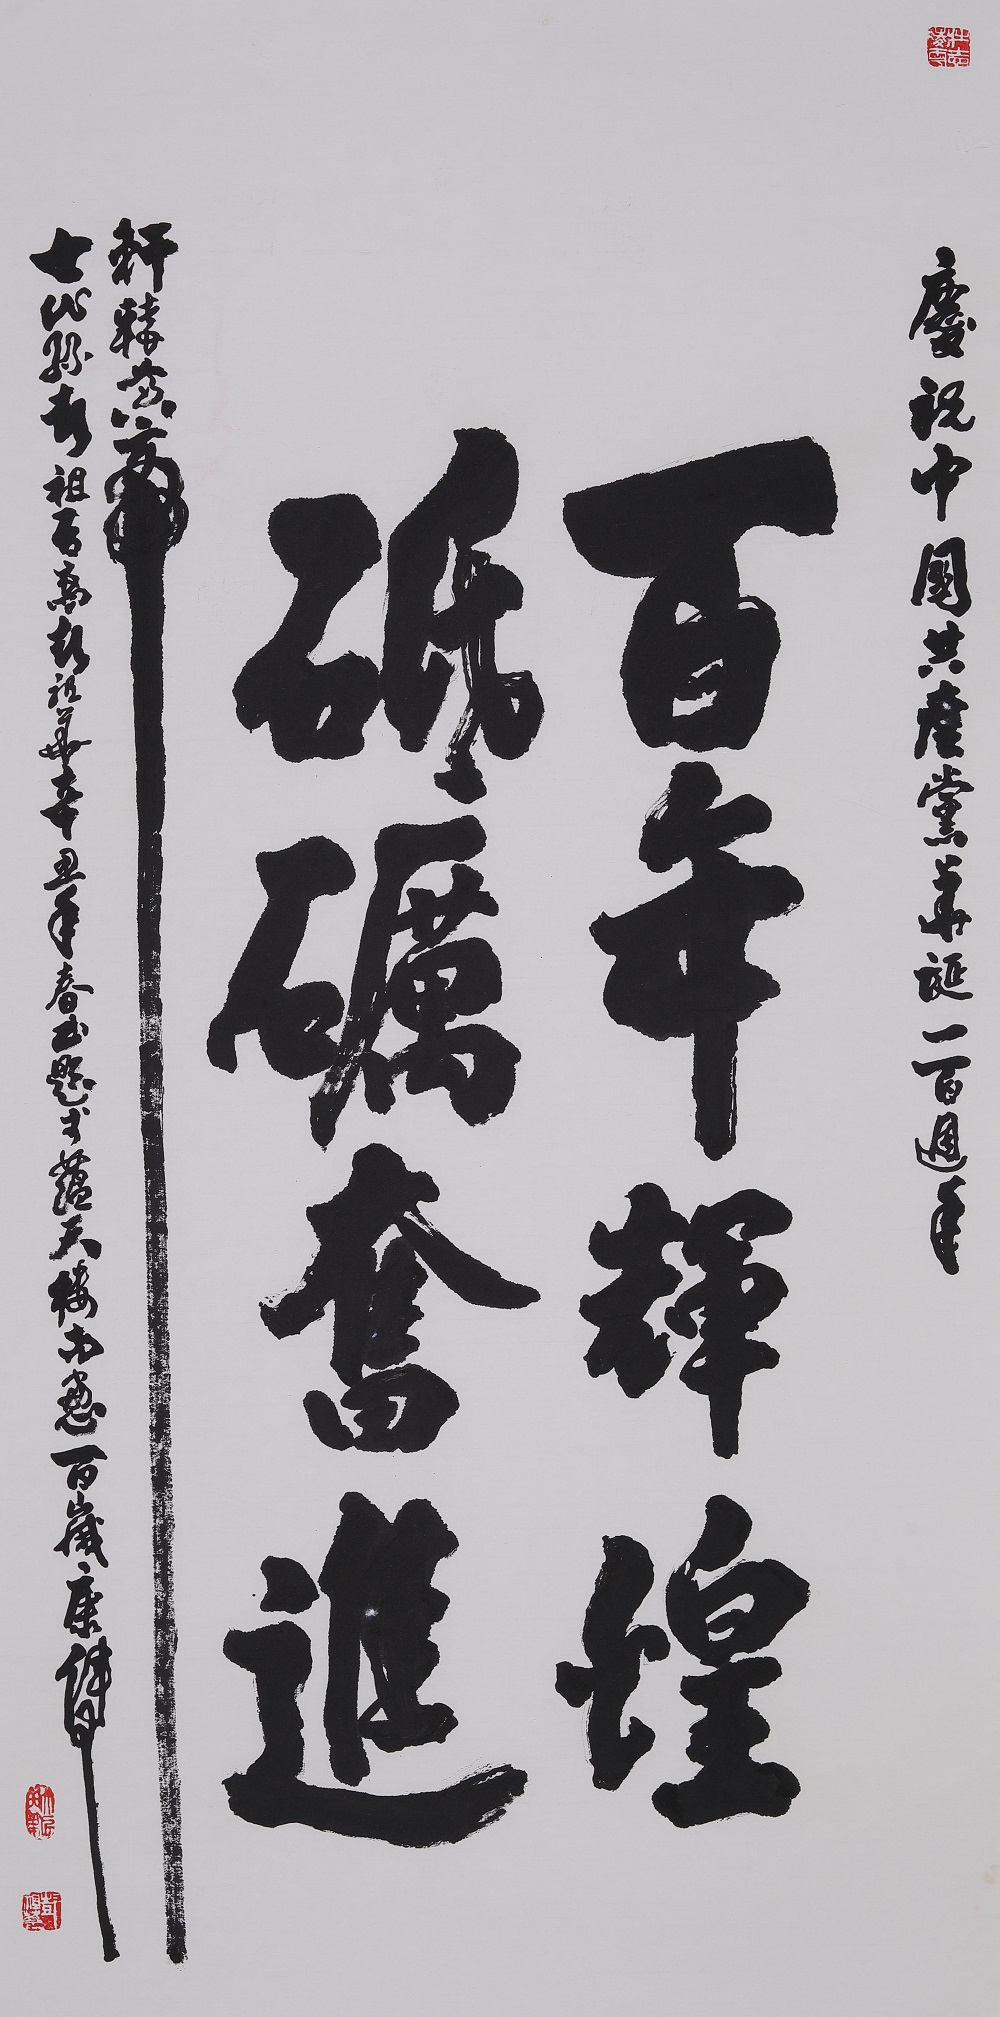 慶祝中國共產黨華誕一百週年
百年輝煌
砥礪奮進
軒轅黃帝
七代孫彭祖百高彭祖華辛丑年春書題於蘊天樓南窗百歲康健